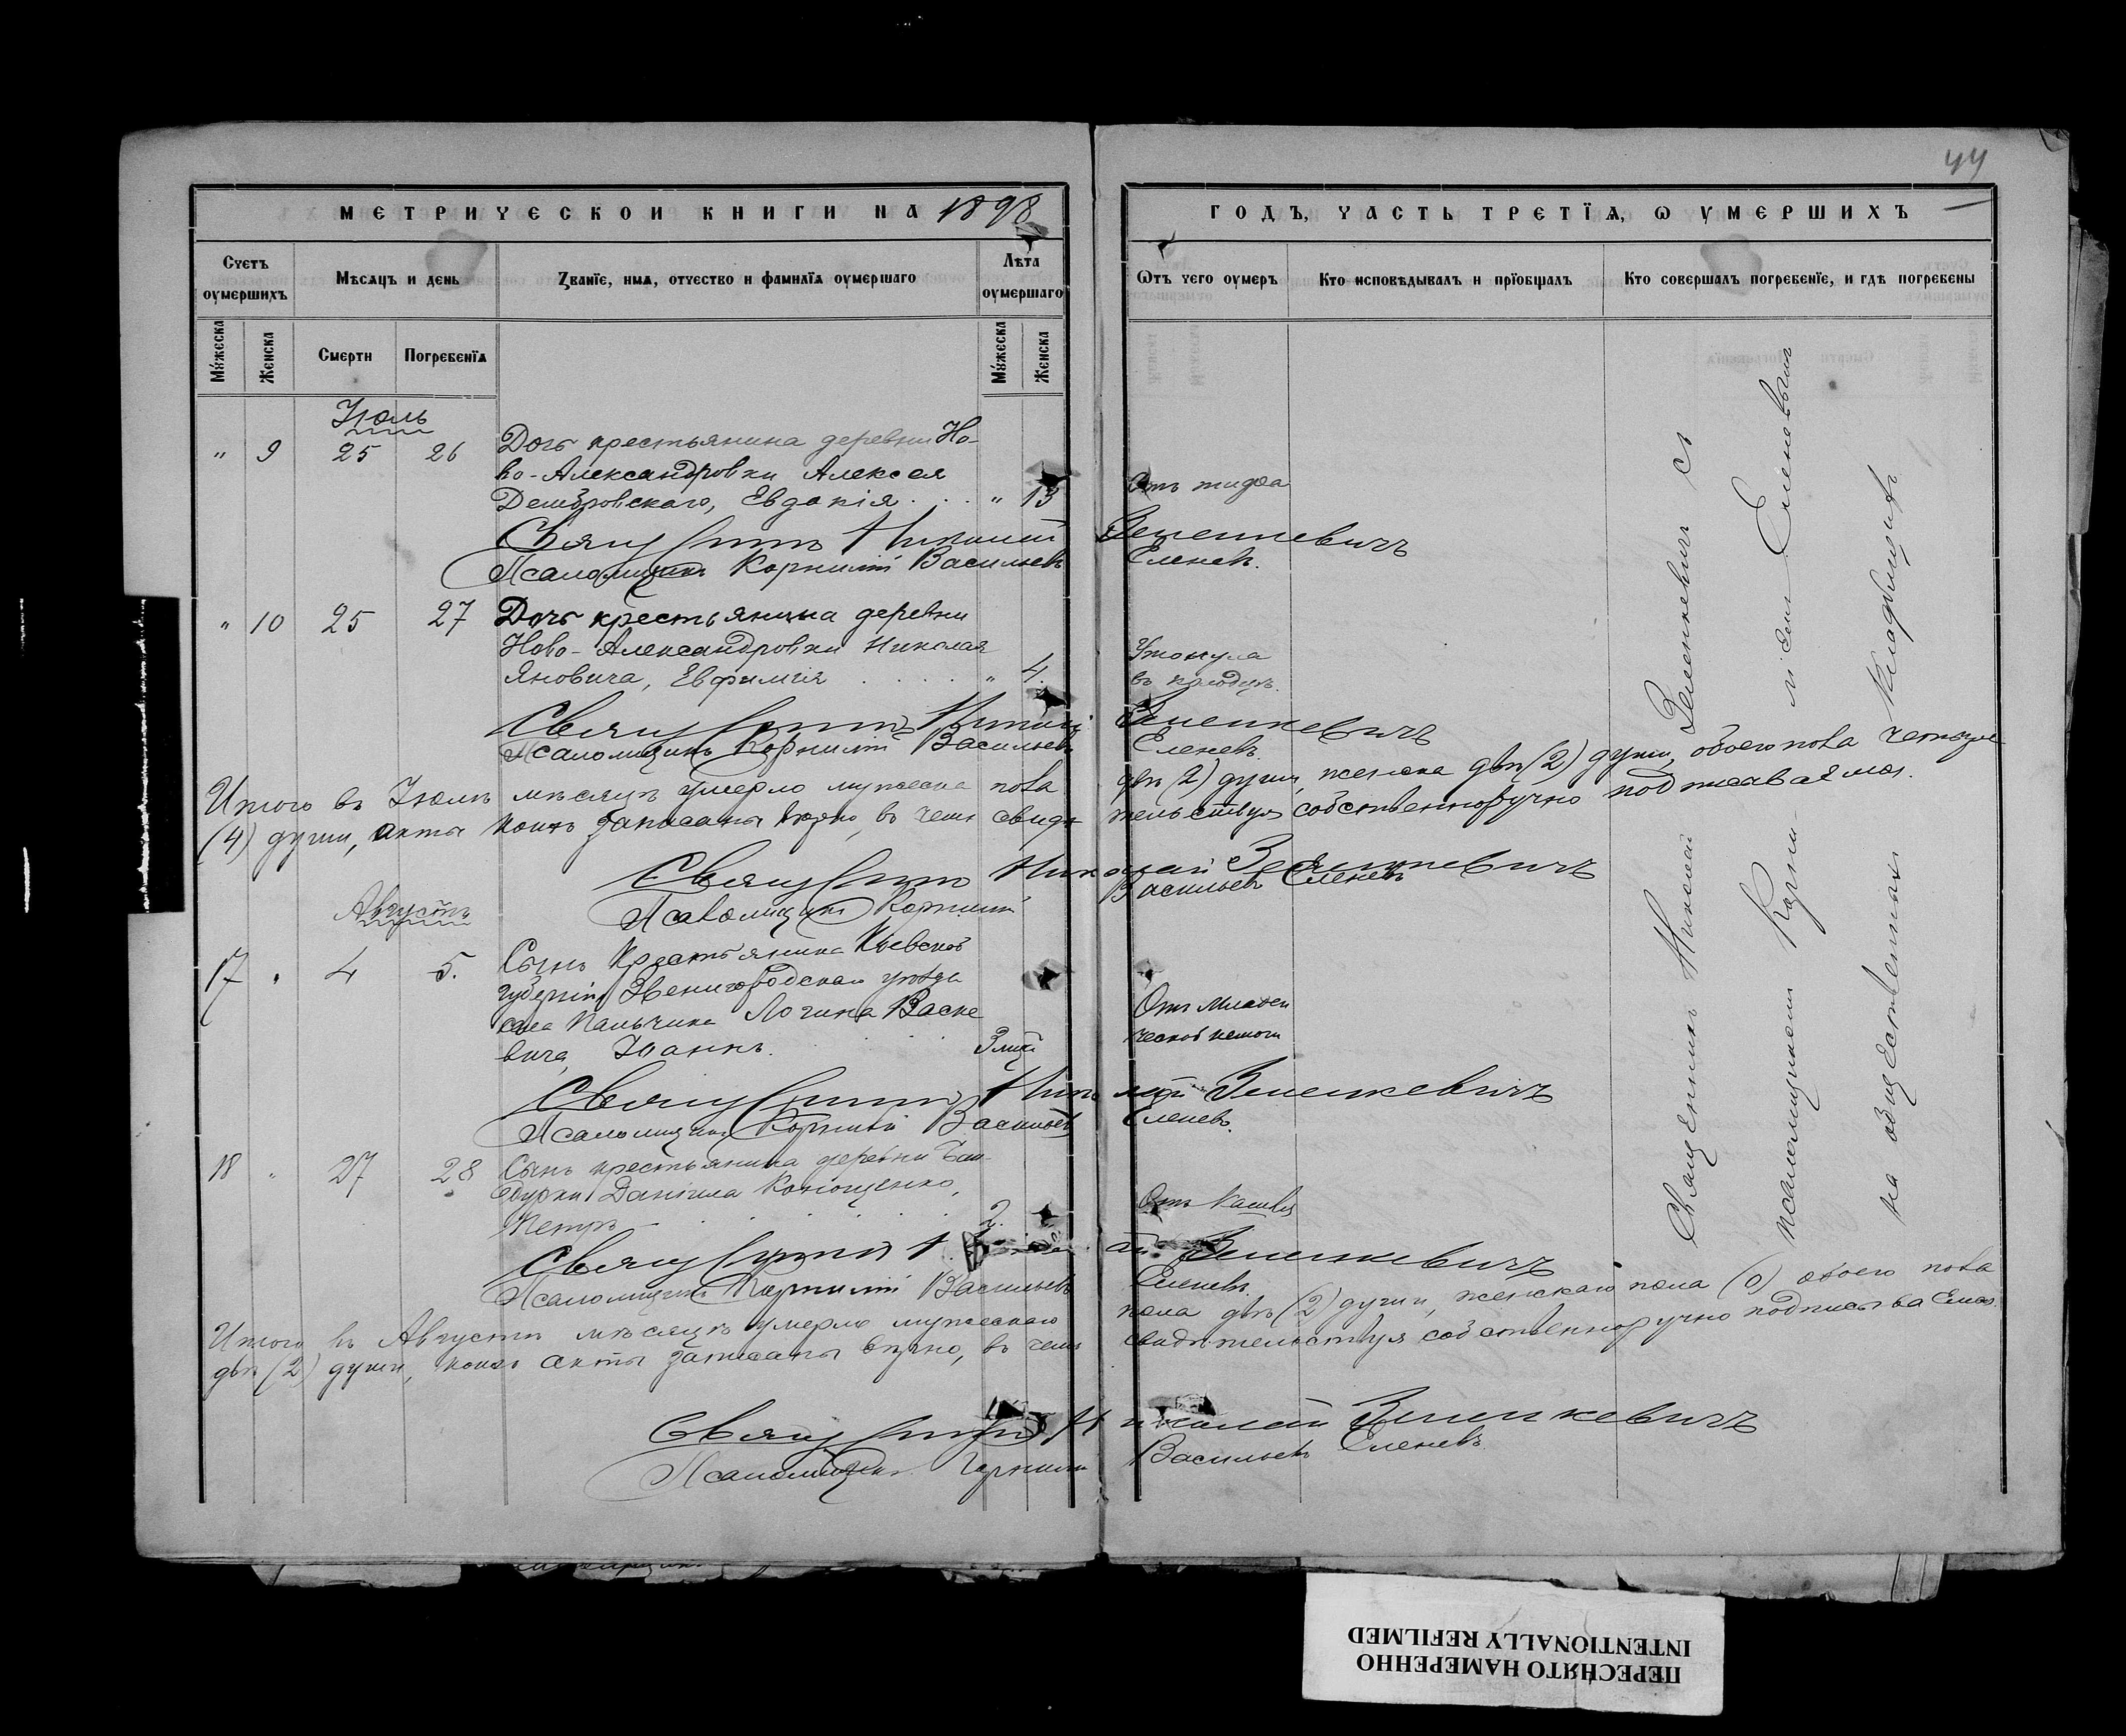 44
МЕТРИЧЕСКОЙ КНИГИ НА 1898
ГОДЪ, ЧАСТЬ ТРЕТІѦ, Ѡ ѸМЕРШИХЪ
Счетъ оумершихъ
Мѣсѧцъ и день
Званїе, имѧ, отчество и фамилїѧ оумершаго
Лѣта оумершаго
Ѿтъ чего оумеръ
Кто исповѣдывалъ и прїобщалъ
Кто совершалъ погребенїе, и гдѣ погребены
Мужеска
Женска
Смерти
Погребенїѧ
Мужеска
Женска
Іюль
" 9 25 26 Дочь крестьянина деревни Но-
во-Александровки Алексея
Домбровскаго, Евдокія . . . " 13 Отъ тифа
Священникъ Николай Зеленкевичъ
Псаломщикъ Корнилій Васильевъ Еленевъ.
" 10 25 27 Дочь крестьянина деревни
Ново-Александровки Николая Утонула
Яновича, Евфимія . . . . " 4. въ колодцѣ.
Священникъ Николай Зеленкевичъ
Псаломщикъ Корнилій Васильевъ Еленевъ.
Итого въ Іюлѣ мѣсяцѣ умерло мужеска пола двѣ (2) души, женска двѣ (2) души, обоего пола четыре
(4) души, акты коихъ записаны вѣрно, въ чемъ свидѣтельствуя собственноручно подписываемся.
Священникъ Николай Зеленкевичъ
Псаломщикъ Корнилій Васильевъ Еленевъ
Августъ
17 " 4 5. Сынъ крестьянина Кіевской
губерніи Звенигородскаго уѣзда
села Пальчика Логина Васке Отъ младен
вича, Іоаннъ. . . . . 3 мѣс. ческой немощи
Священникъ Николай Зеленкевичъ
Псаломщикъ Корнилій Васильевъ Еленевъ.
18 " 27 28 Сынъ крестьянина деревни Бай-
бурки Даніила Конющенко,
Петръ . . . . . . 2. Отъ кашля
Священникъ Николай Зеленкевичъ
Псаломщикъ Корнилій Васильевъ Еленевъ.
Итого въ Августѣ мѣсяцѣ умерло мужескаго пола двѣ (2) души, женскаго пола (0) обоего пола
двѣ (2) души, коихъ акты записаны вѣрно, въ чемъ свидѣтельствуя собственноручно подписываемся.
Священникъ Николай Зеленкевичъ
Псаломщикъ Корнилій Васильевъ Еленевъ
Священникъ Николай Зеленкевичъ съ
псаломщикомъ Корнилiемъ Еленевымъ
на общественномъ кладбищѣ
ПЕРЕСНЯТО НАМЕРЕННО
INTENTIONALLY REFILMED